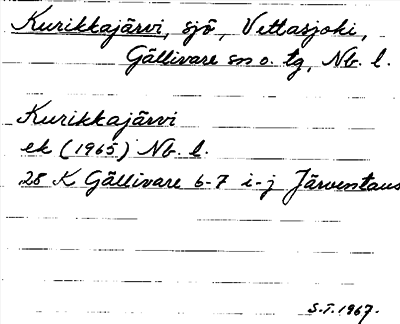 Kurikkajärvi, sjö, Vettasjoki,
Gällivare sn o. tg, Nb. l.
Kurikkajärvi
ek (1965) Nb. l.
28 K Gällivare 6-7 i-j Järventaus
S.T. 1967.